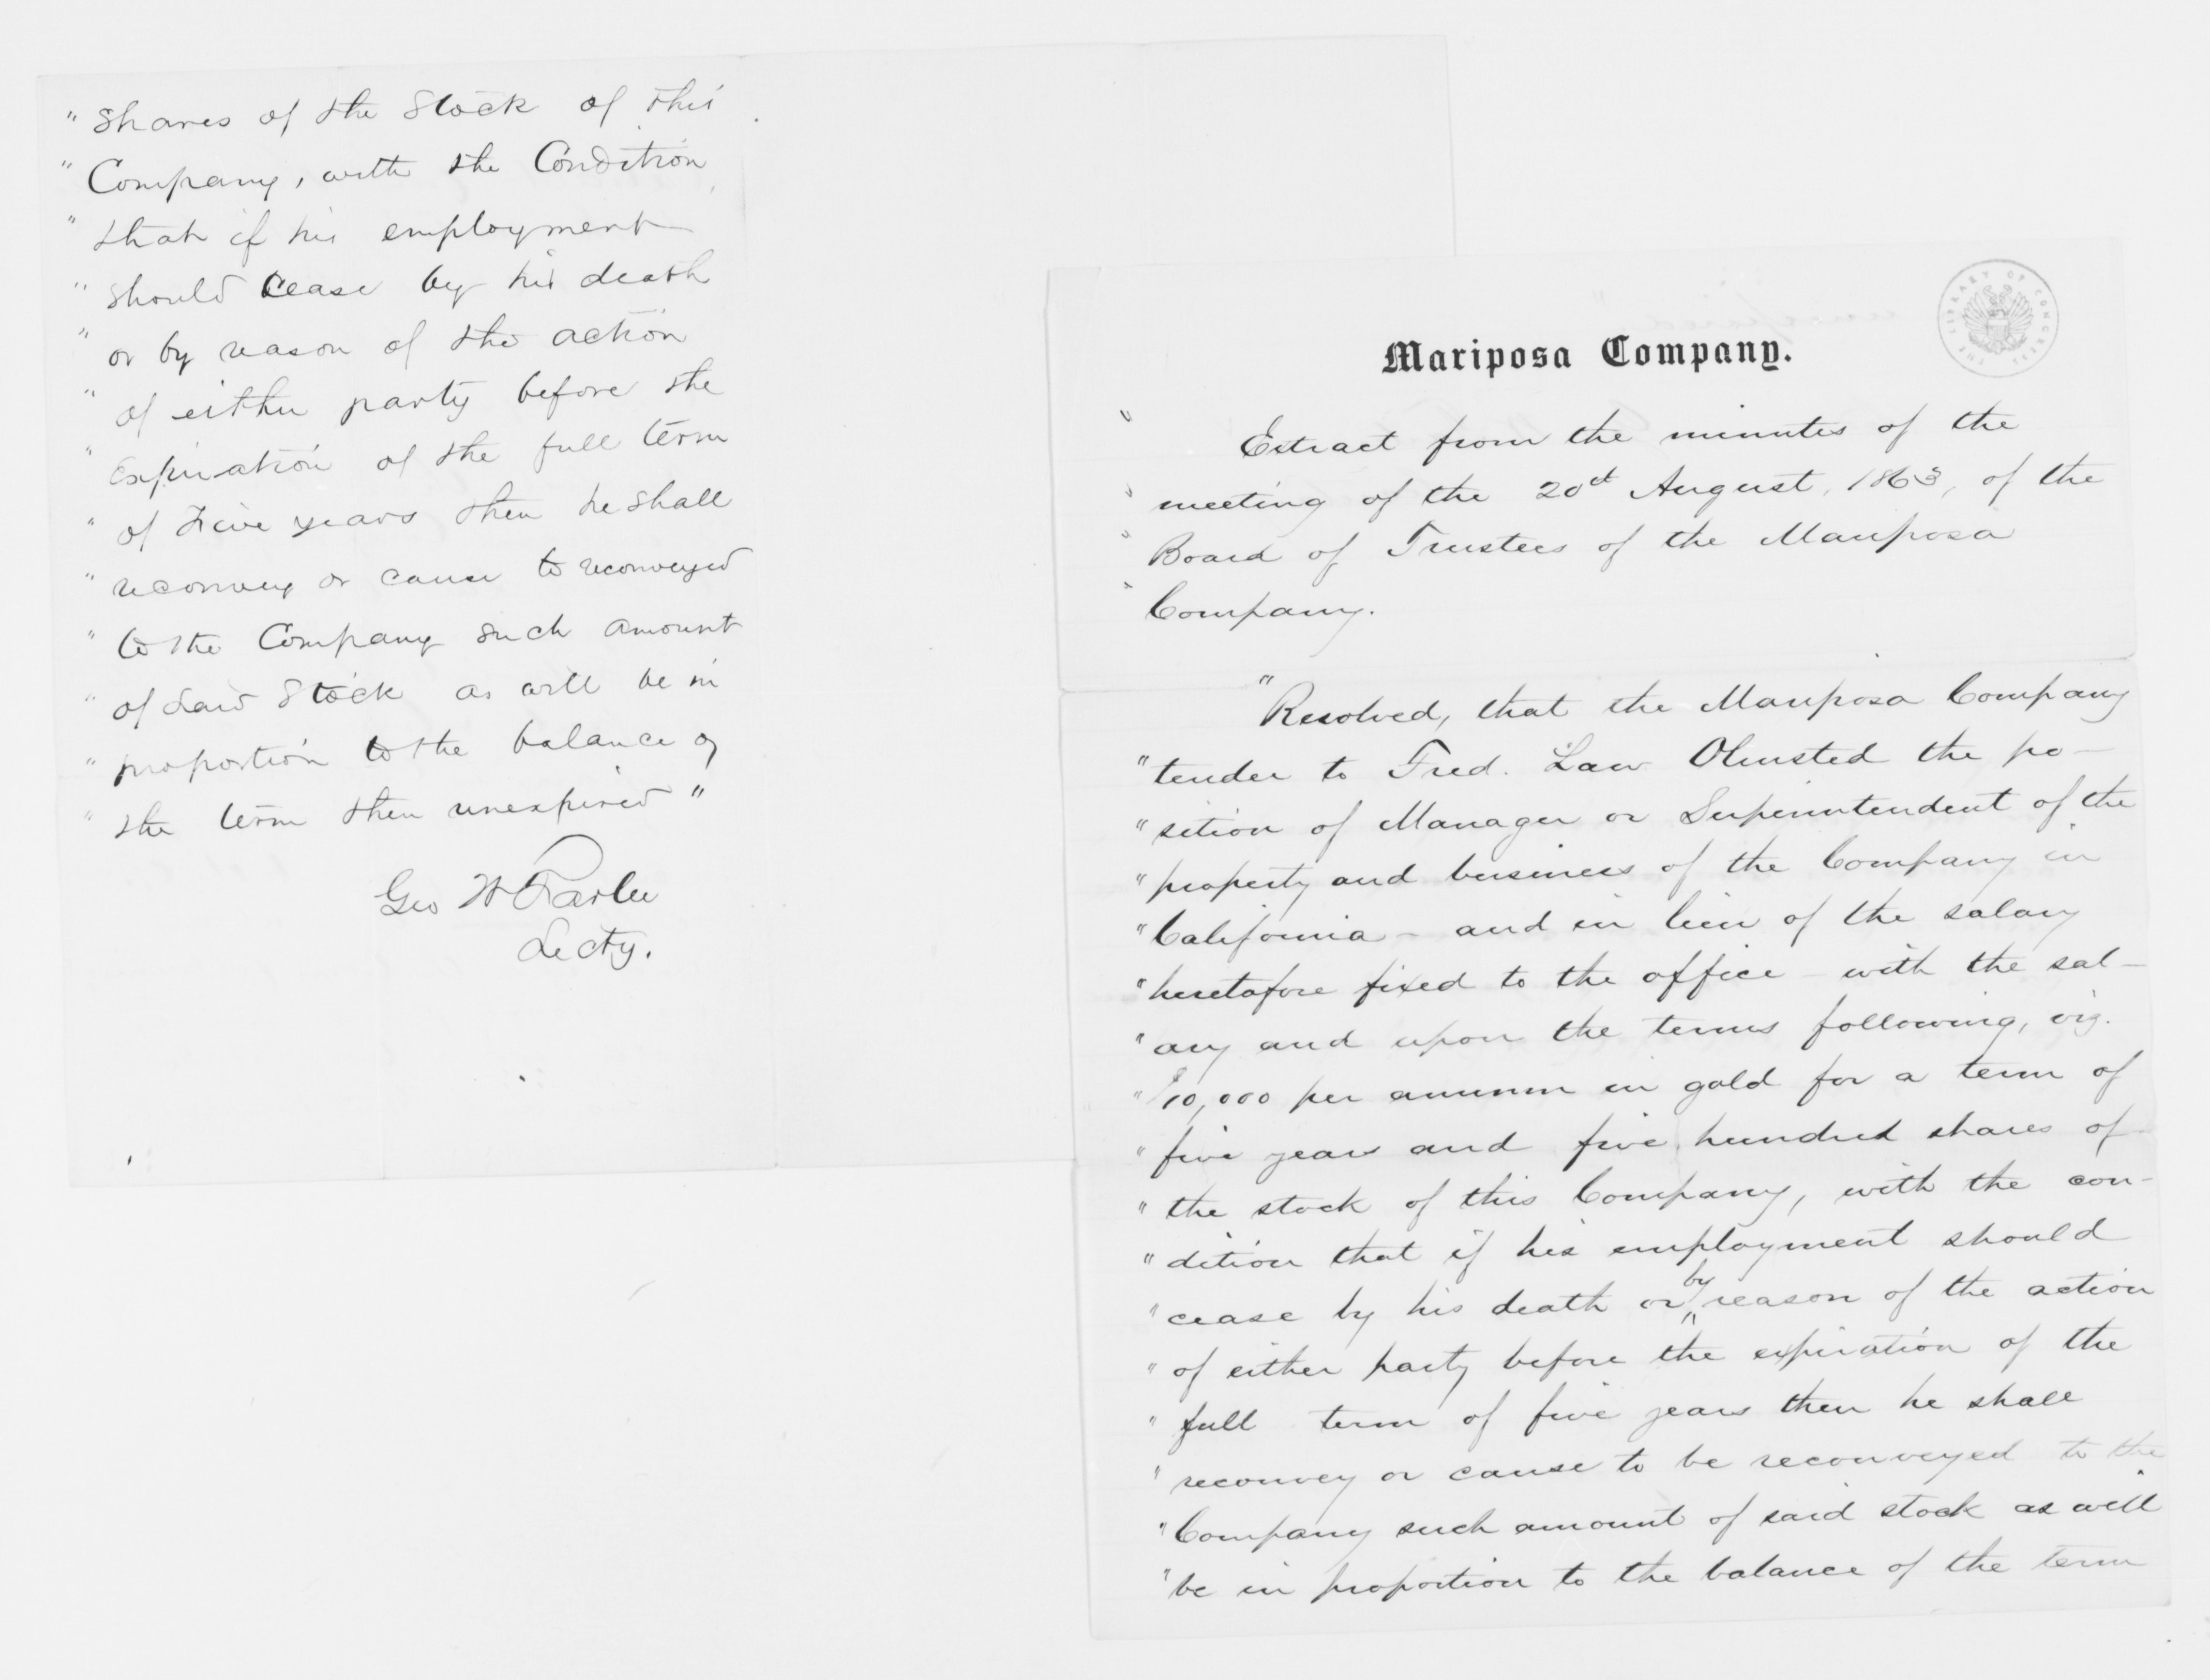 " Shares of the Stock of this
" Company, with the Condition
" that if his employment
" should Cease by his death
" or by reason of the action
" of either party before the
" Expiration of the full term
" of Five years then he shall
" reconvey or cause to reconveyed
" to the Company such amount
" of Said Stock as will be in
" proportion to the balance of
" the term then unexpired "
Geo W
Secty.
THE LIBRARY OF CONGRESS
Mariposa Company.
Extract from the minutes of the
meeting of the 20th August, 1863, of the
Board of Trustees of the Mariposa
Company.
"Resolved, that the Mariposa Company
"tender to Fred. Law Olmsted the po-
"sition of Manager or Superintendent of the
"property and business of the Company in
"California - and in lieu of the salary
"heretofore fixed to the office - with the sal-
"ary and upon the terms following, viz.
"$10,000 per annum in gold for a term of
"five years and five hundred shares of
"the stock of this Company, with the con-
"dition that if his employment should
"cease by his death or by reason of the action
"of either party before the expiration of the
"full term of five years then he shall
"reconvey or cause to be reconveyed to the
"Company such amount of said stock as will
"be in proportion to the balance of the term